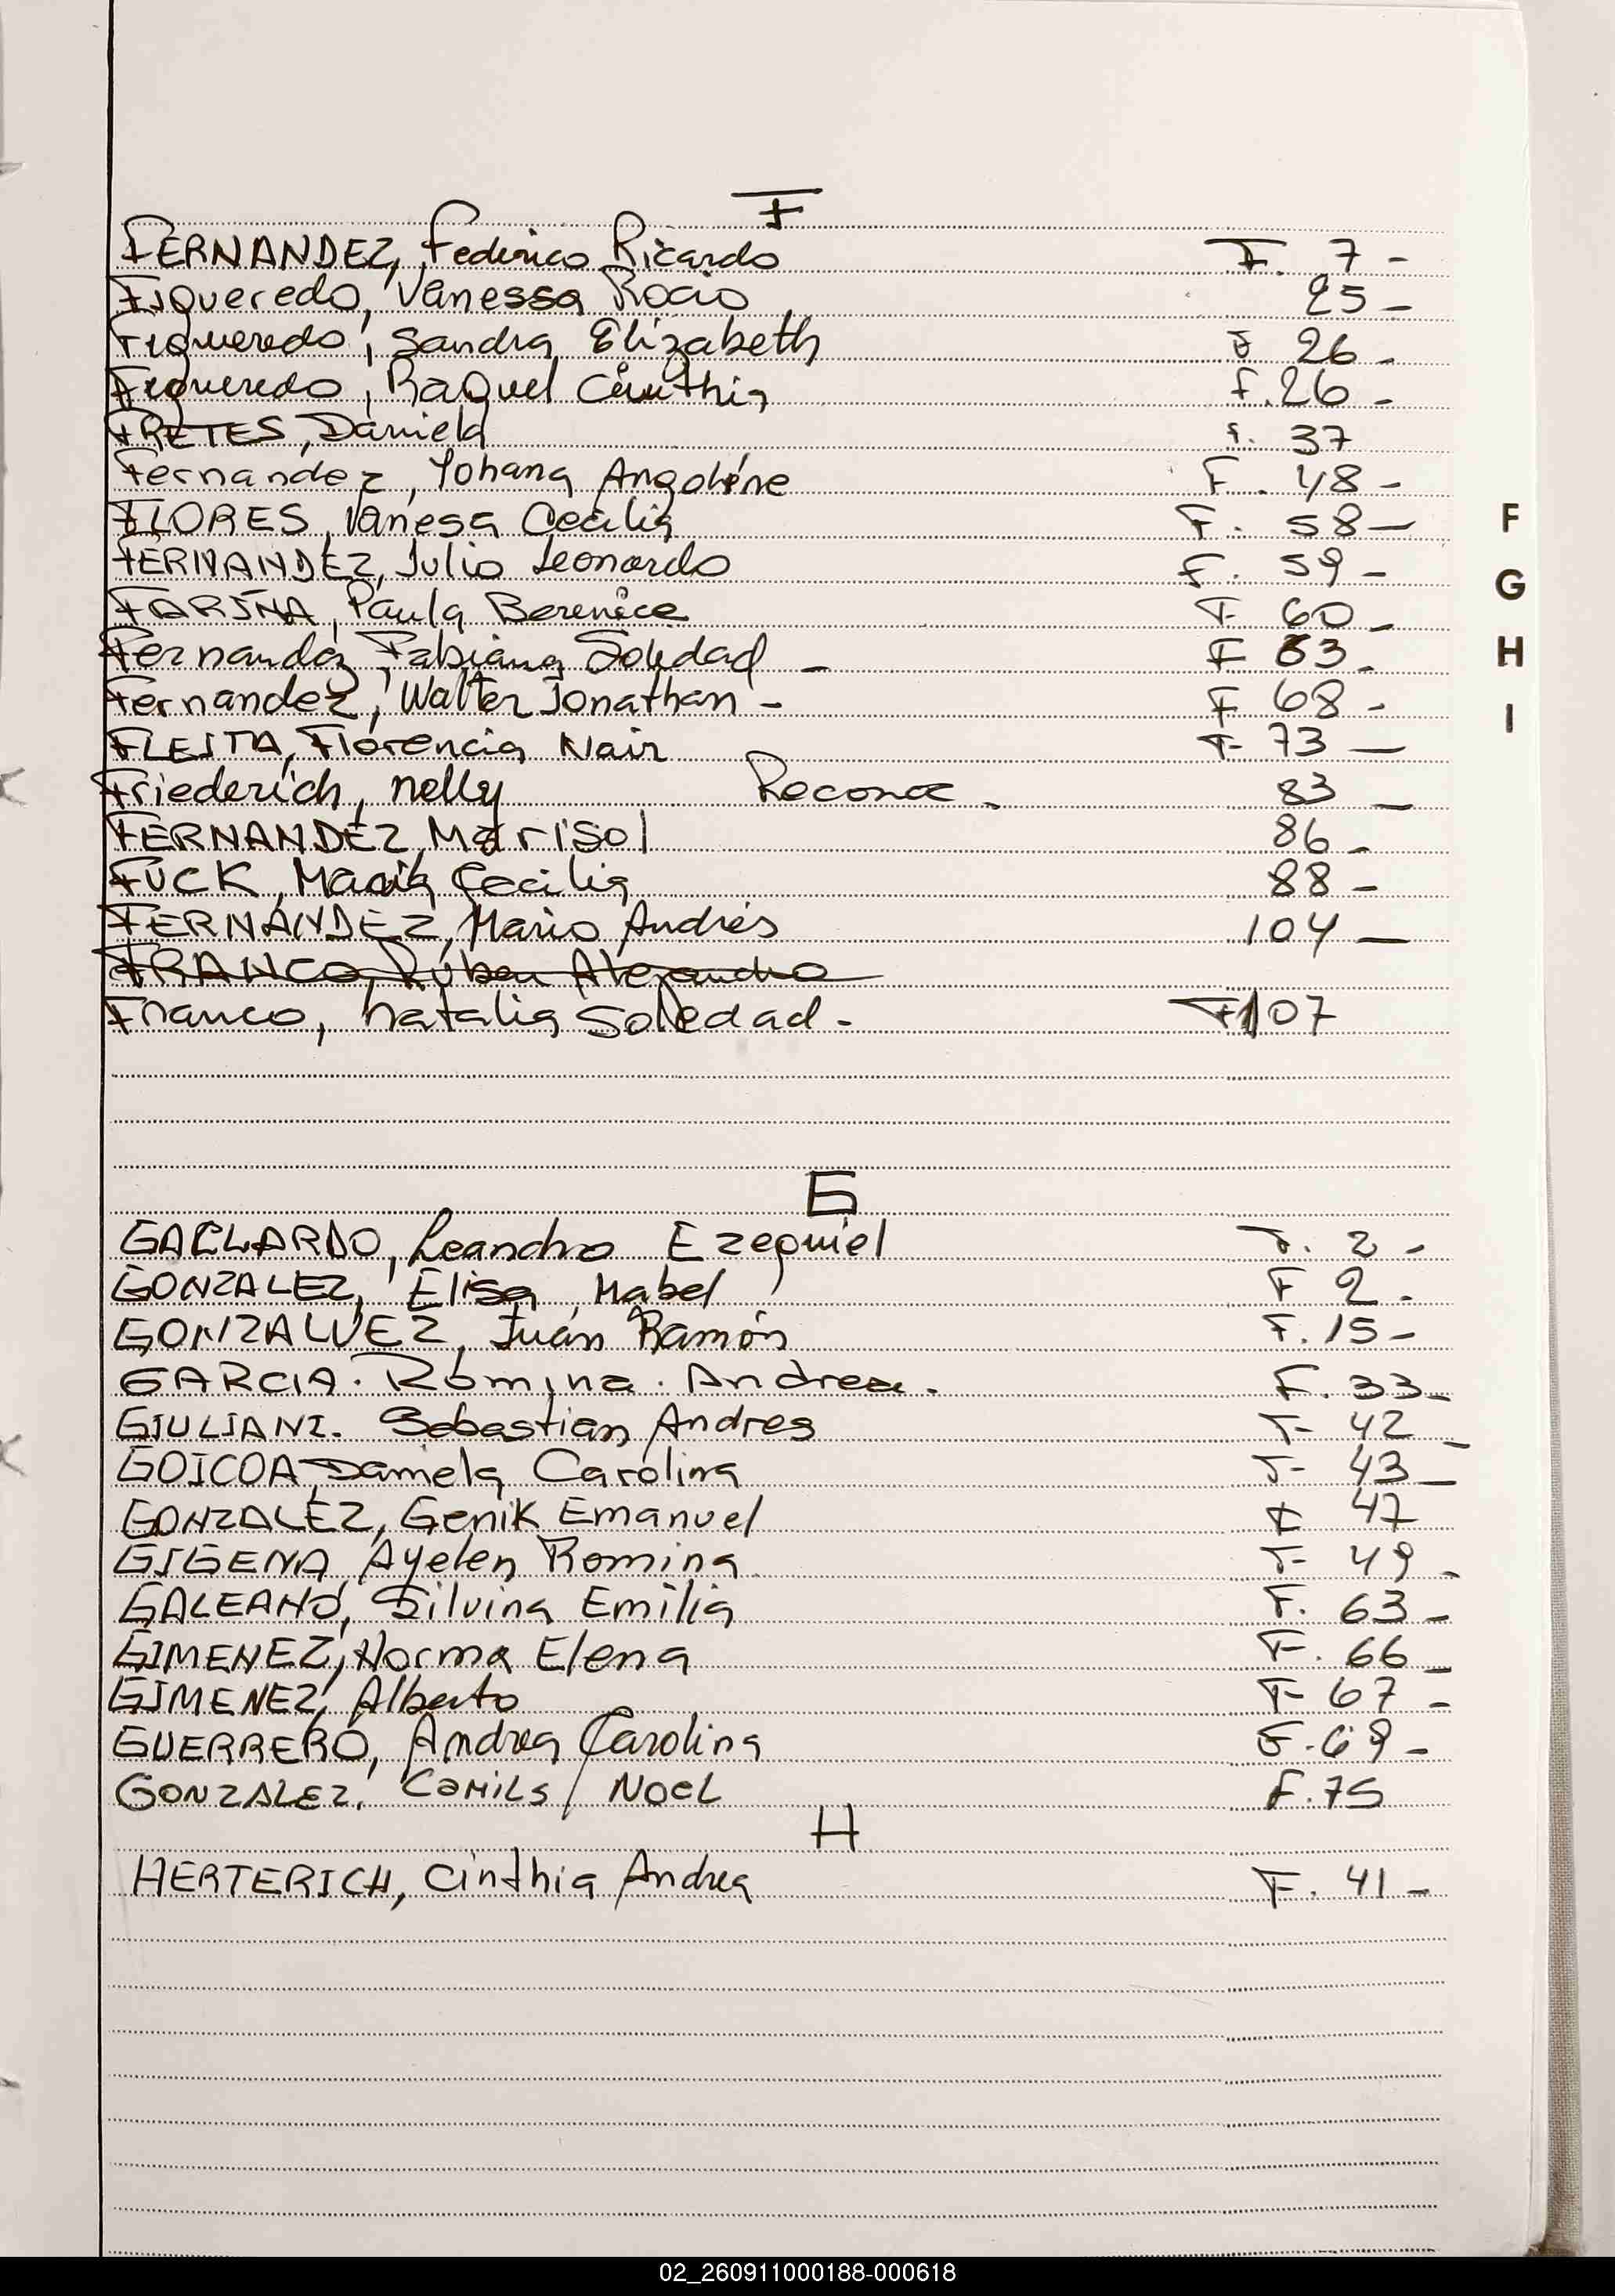 F
FERNANDEZ, Federico Ricardo F. 7 -
Figueredo, Vanessa Rocio 25 -
Figueredo, Sandra Elizabeth F 26 -
Figueredo, Raquel Cinthia F. 26 -
FRETES, Daniela F. 37
Fernandez, Yohana F. 48 -
FLORES, Vanesa Cecilia F. 58 -
FERNANDEZ, Julio Leonardo F. 59 -
FARIÑA, Paula Berenice F 60 -
Fernandez, Fabiana Soledad - F 63 -
Fernandez, Walter Jonathan - F 68 -
FLEITA, Florencia Nair F- 73 -
Friederich, Nelly Reconoc. 83 -
FERNANDEZ, Marisol 86 -
FUCK, Maria Cecilia 88 -
FERNÁNDEZ, Mario Andrés 104 -
FRANCO, Rúben Alejandro
Franco, Natalia Soledad - F 107
G
GALLARDO, Leandro Ezequiel F. 2 -
GONZALEZ, Elisa Mabel F 2 -
GONZALVEZ, Juán Ramón F. 15 -
GARCIA. Romina. Andrea. F. 33 -
GIULIANI. Sebastian Andres F- 42 -
GOICOA, Daniela Carolina F- 43 -
GONZALEZ, Genik Emanuel F 47
GIGENA, Ayelen Romina F- 49 -
GALEANO, Silvina Emilia F. 63 -
GIMENEZ, Norma Elena F. 66 -
GIMENEZ, Alberto F- 67 -
GUERRERO, Andrea Carolina F. 69 -
GONZALEZ, Camila Noel F. 75
H
HERTERICH, Cinthia Andrea F. 41 -
F
G
H
I
02_260911000188-000618